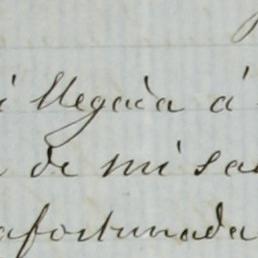 i llegada á
de mi sa
afortunada